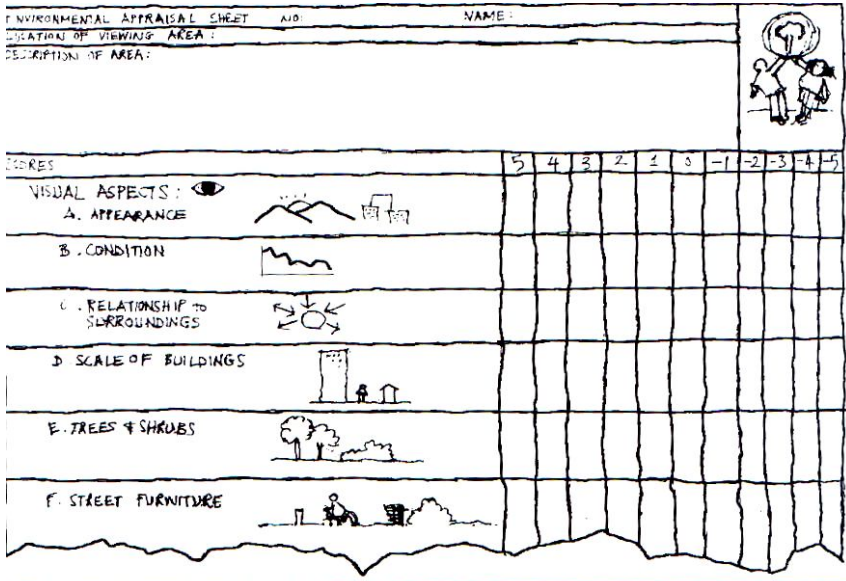 NVIRONMENTAL APPRAISAL SHEET NO: NAME:
CATION OF VIEWING AREA:
DESCRIPTION OF AREA:
CORES 5 4 3 2 1 0 -1 -2 -3 -4 -5
VISUAL ASPECTS:
A. APPEARANCE
B. CONDITION
C. RELATIONSHIP TO
SURROUNDINGS
D SCALE OF BUILDINGS
E. TREES & SHRUBS
F. STREET FURNITURE